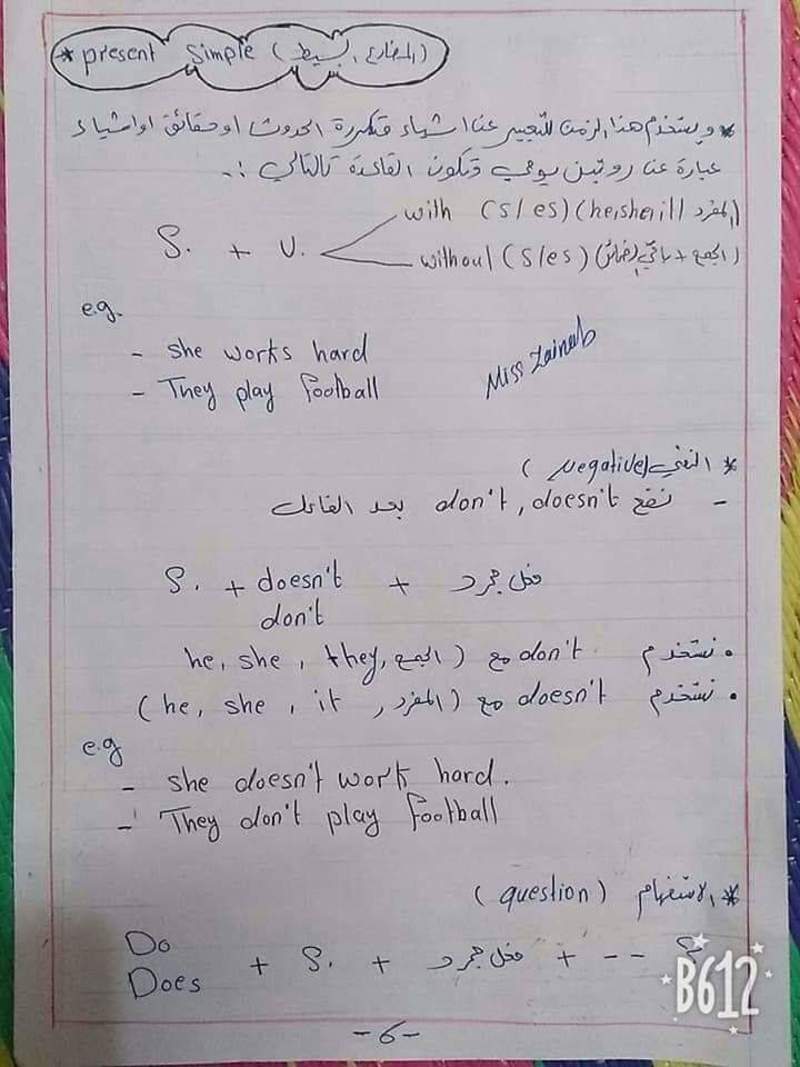 * present Simple (المضارع البسيط)
* ويستخدم هذا الزمن للتعبير عن اشياء متكررة الحدوث او حقائق او اشياء
عبارة عن روتين يومي وتكون القاعدة كالتالي :-
S. + V. with (s/es) (he, she, it / المفرد)
without (s/es) (الجمع + باقي الضمائر)
e.g.
- she works hard
- They play football
Miss Zainab
* النفي (Negative)
- نضع don't, doesn't بعد الفاعل
S. + doesn't + فعل مجرد
don't
. نستخدم don't مع (الجمع, he, she, they
. نستخدم doesn't مع (المفرد, he, she, it)
e.g
- she doesn't work hard.
- They don't play football
* الاستفهام (question)
Do
Does + S. + فعل مجرد + -- ?
B612
-6-